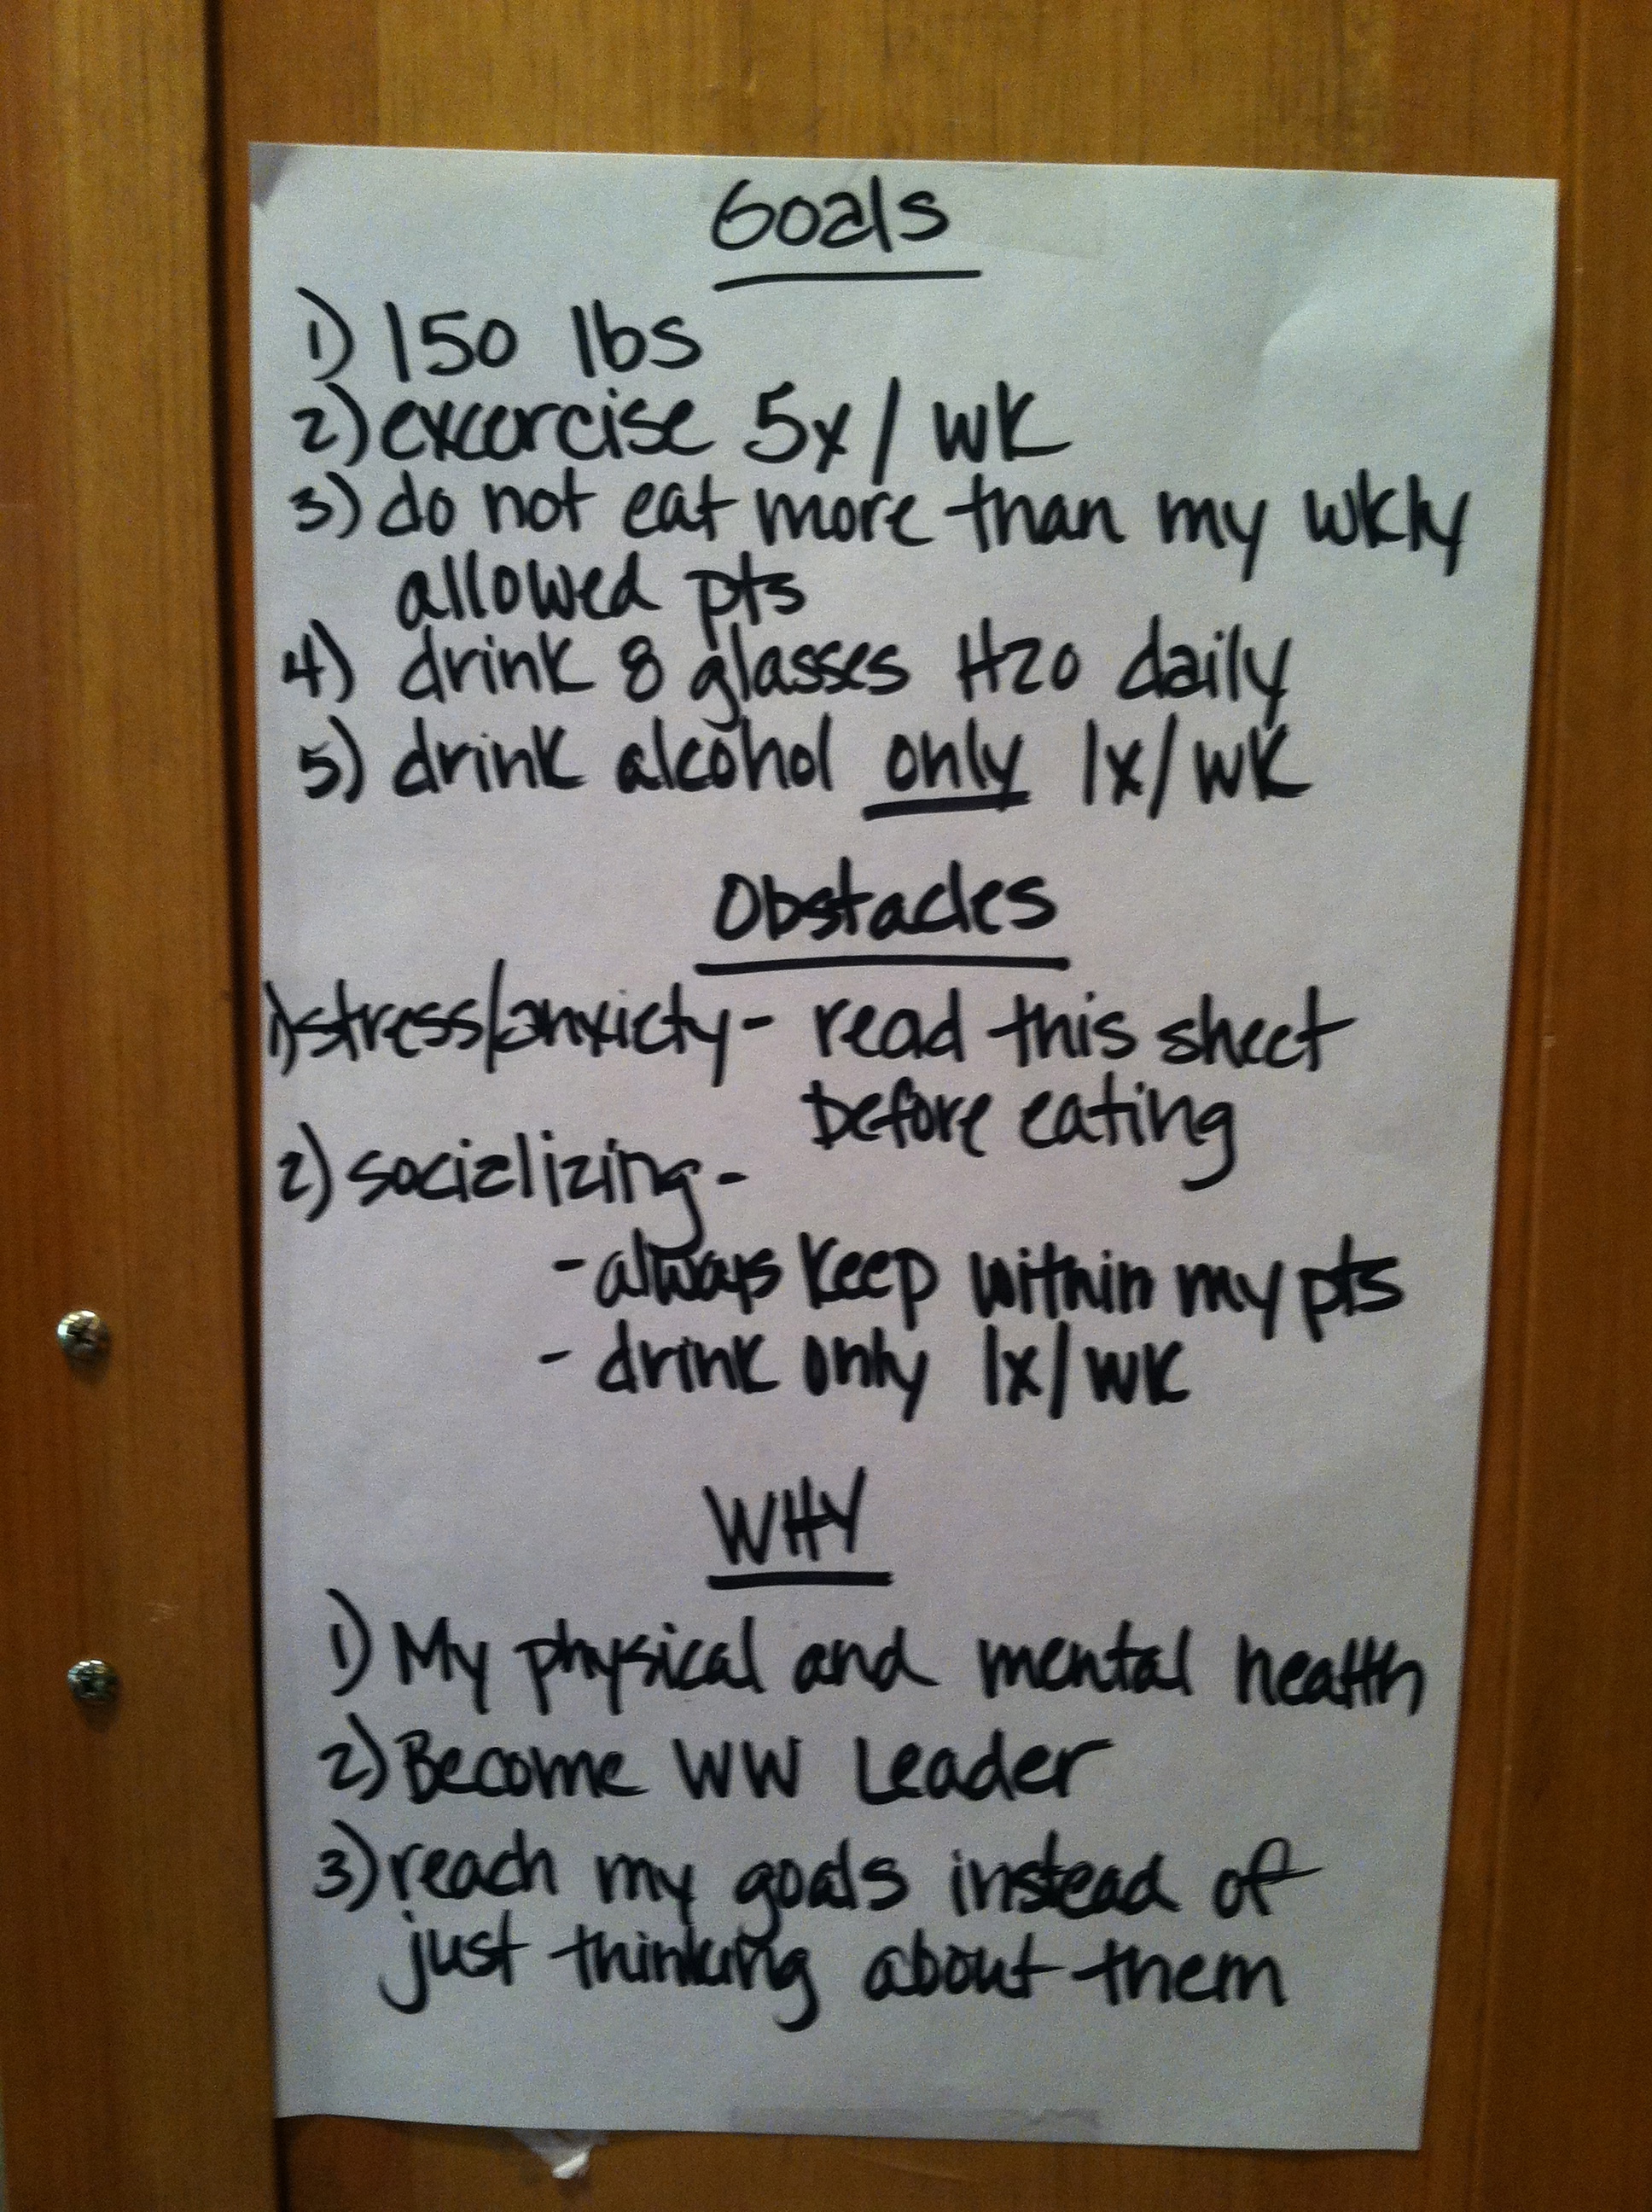 Goals
1) 150 lbs
2) excercise 5x/wk
3) do not eat more than my wkly
allowed pts
4) drink 8 glasses H2O daily
5) drink alcohol only 1x/wk
Obstacles
1) stress/anxiety - read this sheet
before eating
2) socializing -
- always keep within my pts
- drink only 1x/wk
WHY
1) My physical and mental health
2) Become WW Leader
3) reach my goals instead of
just thinking about them